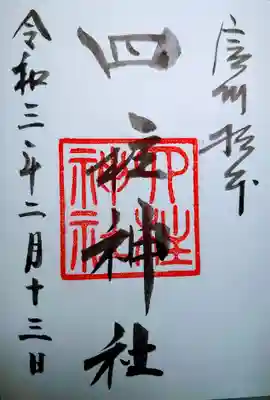 信州松本
四柱神社
四柱神社
令和三年二月十三日